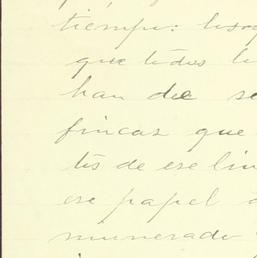 tiempo:
que todos
han de se
fincas que
de ese lin
ese papel
numerado